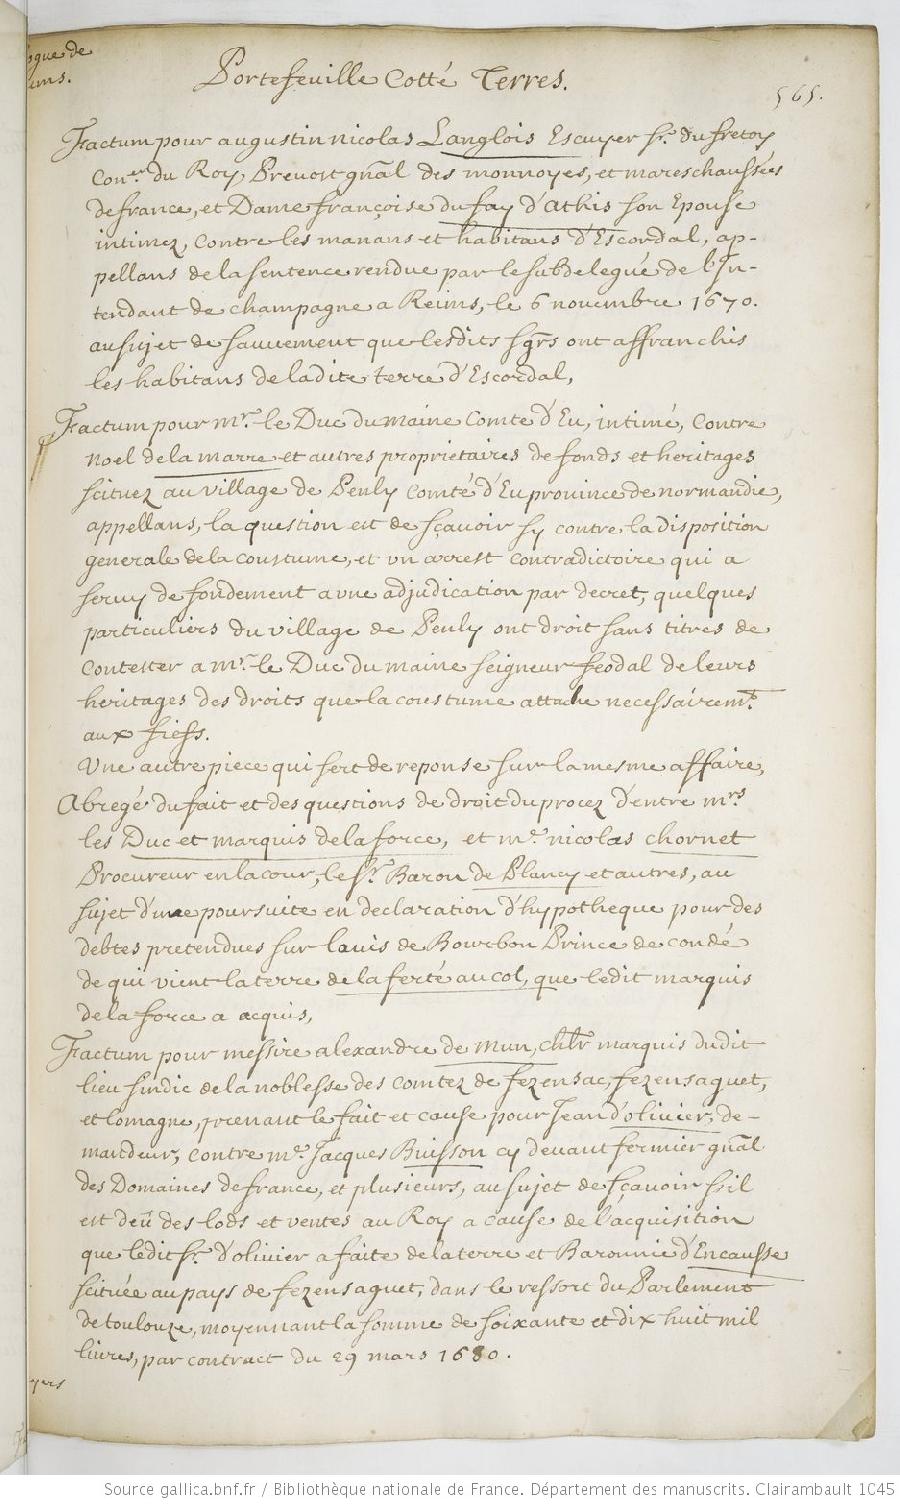 ogue de
ims.
Portefeuille Cotté Terres.
565.
Factum pour augustin nicolas Langlois Escuyer Sr. du fretoy
Con.er du Roy, Prevost gñal des monnoyes, et mareschaussées
de france, et Dame françoise du fay d'athis son Epouse
intimez, Contre les manans et habitans d'Escordal, ap-
pellans de la sentence rendue par le subdelegué de l'In-
tendant de champagne a Reims, le 6 novembre 1670.
au sujet de sauvement que lesdits sgrs ont affranchis
les habitans de ladite terre d'Escordal,
Factum pour mr. le Duc du maine Comte d'Eu, intimé, Contre
noel de la marre et autres proprietaires de fonds et heritages
scituez au village de Penly Comté d'Eu province de normandie,
appellans, la question est de sçavoir sy contre la disposition
generale de la coustume, et un arrest contradictoire qui a
servy de fondement a une adjudication par decret, quelques
particuliers du village de Penly ont droit sans titres de
contester a mr. le Duc du maine seigneur feodal de leurs
heritages des droits que la coustume attache necessairemt.
aux fiefs.
Une autre piece qui sert de reponse sur la mesme affaire,
Abregé du fait et des questions de droit du procez d'entre mrs
les Duc et marquis de la force, et me. nicolas chornet
Procureur en la cour, le Sr. Baron de Plancy et autres, au
sujet d'une poursuite en declaration d'hypotheque pour des
debtes pretendues sur louis de Bourbon Prince de condé
de qui vient la terre de la ferté au col, que ledit marquis
de la force a acquis,
Factum pour messire alexandre de mun, chlr marquis dudit
lieu sindic de la noblesse des comtez de fezensac, fezensaguet,
et lomagne, prenant le fait et cause pour Jean d'olivier, de-
mandeur, contre me. Jacques Buisson cy devant fermier gñal
des Domaines de france, et plusieurs, au sujet de sçavoir s'il
est deü des lods et ventes au Roy a cause de l'acquisition
que ledit Sr. d'olivier a faite de la terre et Baronnie d'Encausse
scituée au pays de fezensaguet, dans le ressort du Parlement
de toulouze, moyennant la somme de soixante et dix huit mil
livres, par contract du 29 mars 1680.
yers
Source gallica.bnf.fr / Bibliothèque nationale de France. Département des manuscrits. Clairambault 1045